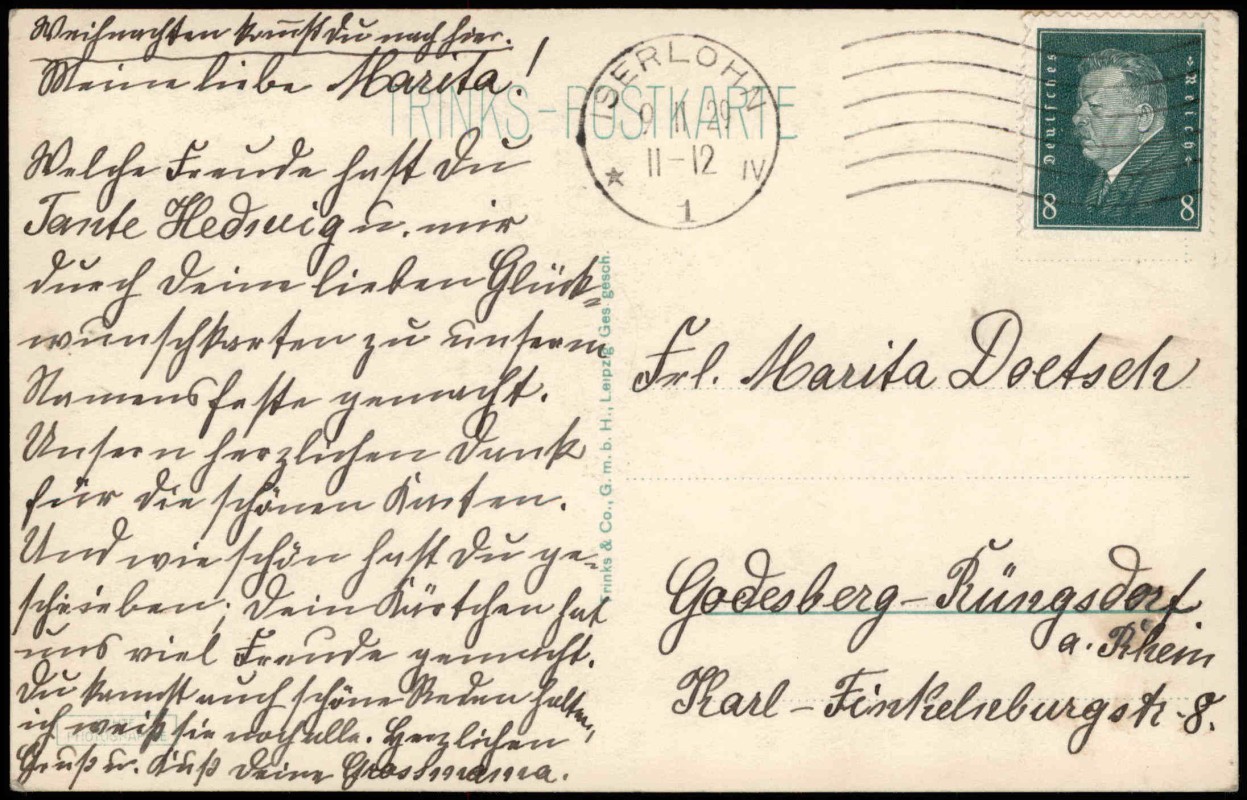 Weihnachten kom̅st du nach hier.
Meine liebe Marita!
Welche Freude hast Du
Tante Hedwig u. mir
durch Deine lieben Glück-
wunschkarten zu unserm
Namensfeste gemacht.
Unsern herzlichen Dank
für die schönen Karten.
Und wie schön hast Du ge-
schrieben; Dein Kärtchen hat
uns viel Freude gemacht.
Du kannst auch schöne Reden halten,
ich weiß sie noch alle. Herzlichen
Gruß u. Kuß Deine Grossmama.
TRINKS-POSTKARTE
ISERLOHN
9 11 29
11-12 IV
* 1
Deutsches Reich
8 8
Trinks & Co., G. m. b. H., Leipzig. Ges. gesch.
Frl. Marita Doetsch
Godesberg-Rüngsdorf
a. Rhein
Karl-Finkelnburgstr. 8.